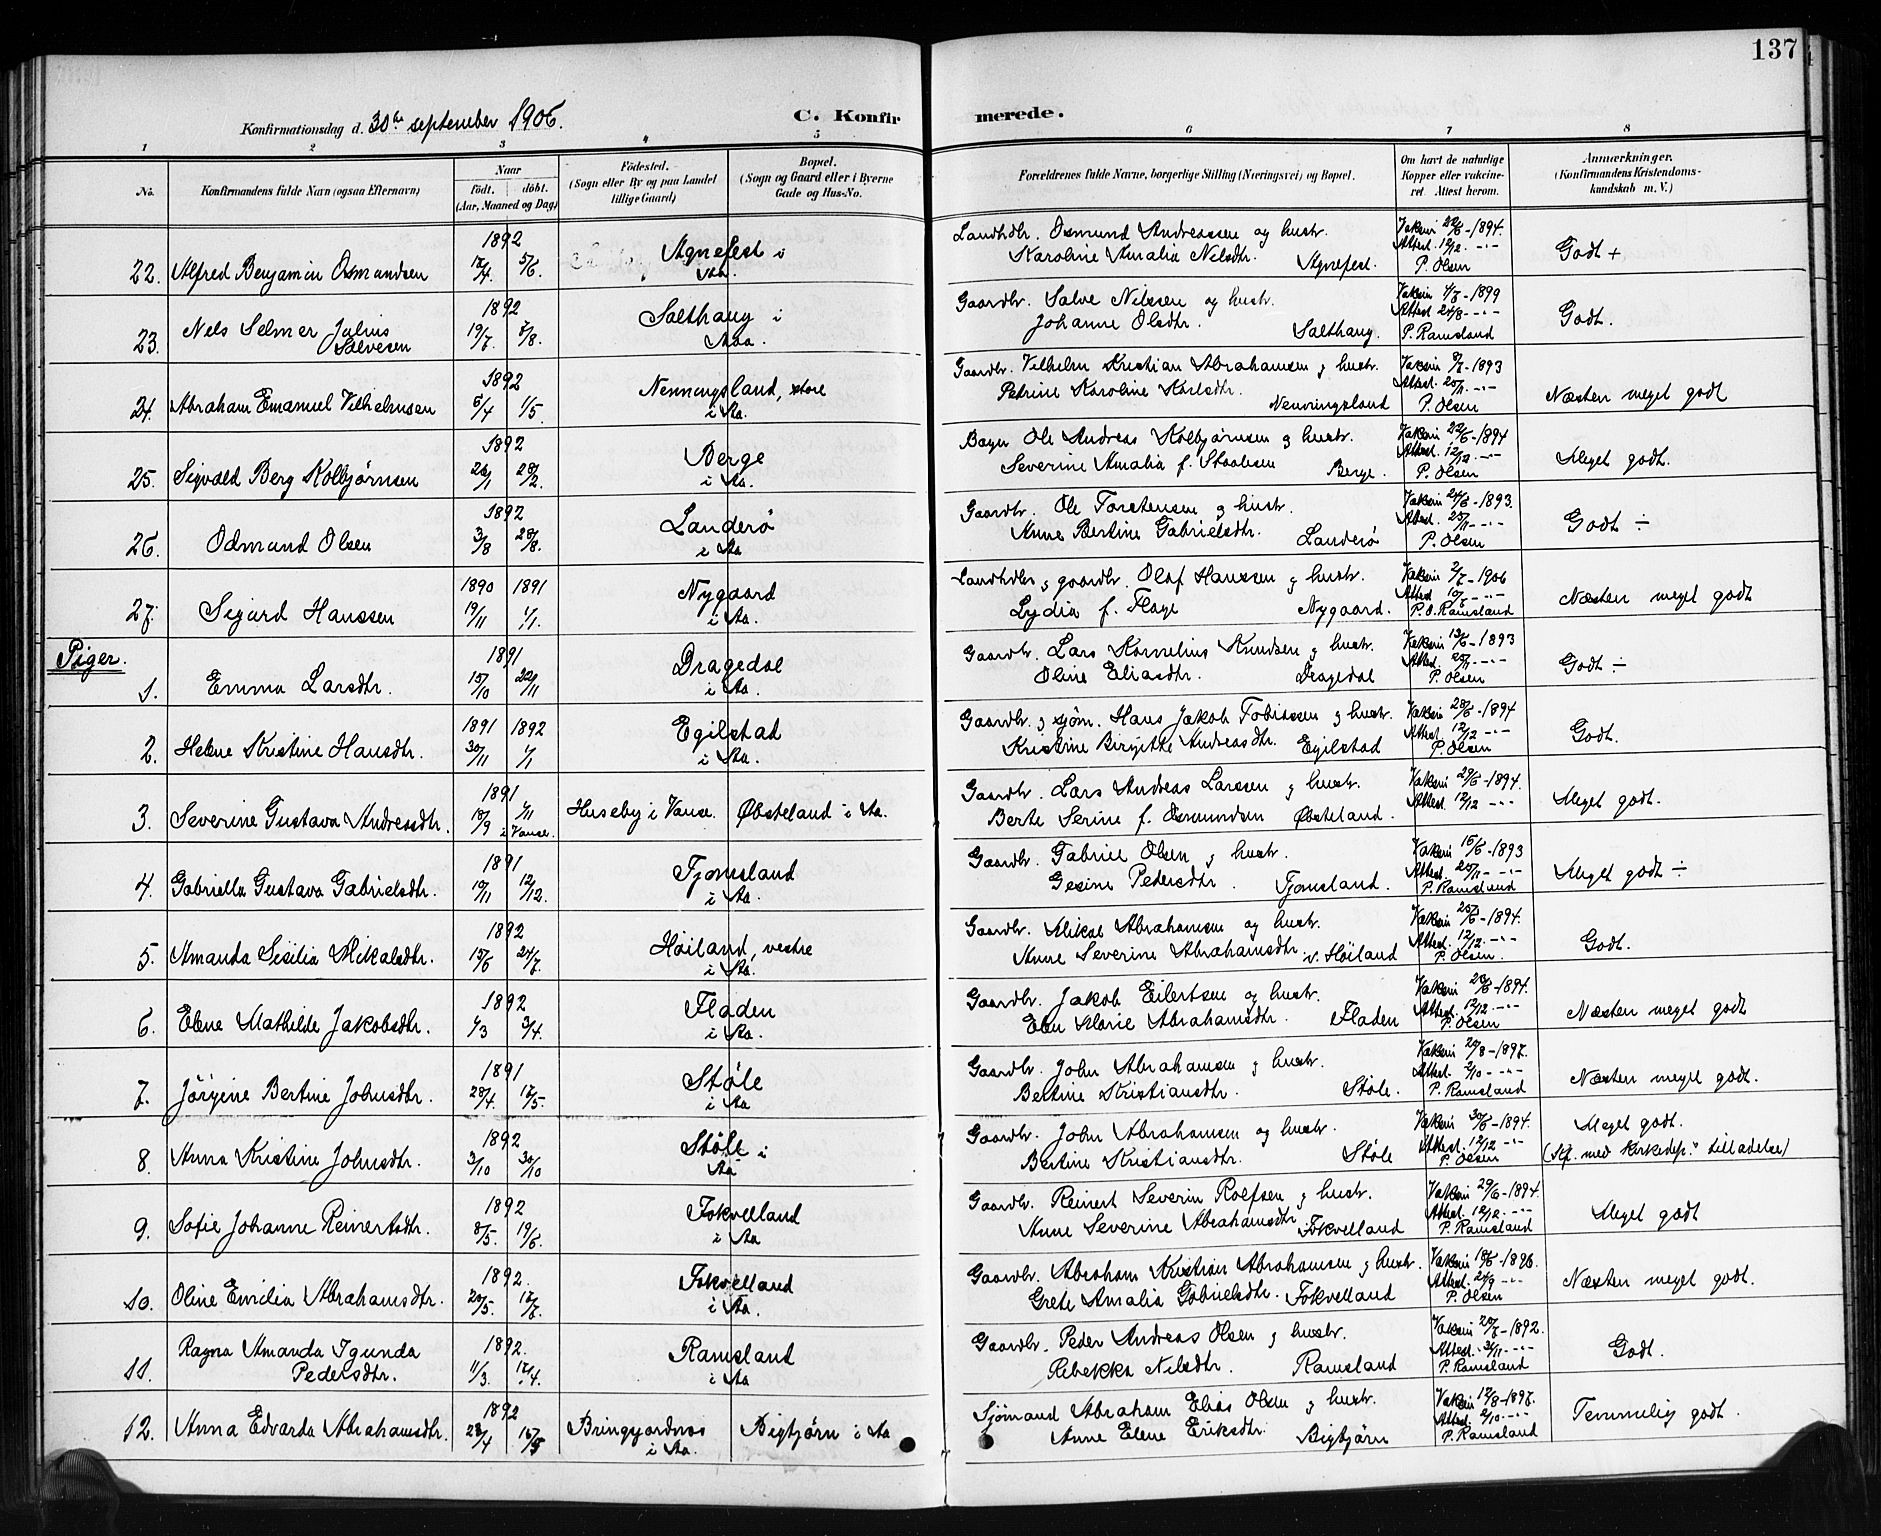 137
Konfirmationsdag d. 30te september 1906.
C. Konfirmerede.
1 2 3 4 5 6 7 8
No.
Konfirmandens fulde Navn (ogsaa Efternavn)
Naar
født. døbt.
(Aar, Maaned og Dag)
Fødested.
(Sogn eller By og paa Landet
tillige Gaard)
Bopæl.
(Sogn og Gaard eller i Byerne
Gade og Hus-No.
Forældrenes fulde Navne, borgerlige Stilling (Næringsvei) og Bopæl.
Om havt de naturlige
Kopper eller vakcine-
ret. Attest herom.
Anmærkninger.
(Konfirmandens Kristendoms-
kundskab m. V.)
1892 Agnefest i Landhdlr. Osmund Andreassen og hustr. Vakcin 22/6-1894.
22. Alfred Benjamin Osmundsen 5/6. Aa. Karoline Amalia Nilsdtr. Agnefest. Attest 12/12. -"- Godt +
P. Olsen
1892 Salthaug i Gaardbr. Salve Nilssen og hustr. Vakcin 4/7-1899
23. Nels Selmer Julius 19/7. 7/8. Aa. Johanne Olsdtr. Salthaug. Attest 24/8- -"- Godt.
Salvesen P. Ramsland
1892 Nenningsland, store Gaardbr. Vilhelm Kristian Abrahamsen & hustr. Vakcin 8/7-1893
24. Abraham Emanuel Vilhelmsen 5/4 1/5. i Aa. Petrine Karoline Karlsdtr. Nenningsland Attest. 25/11. -"- Næsten meget godt
P. Olsen
1892 Berge Ole Andreas Kolbjørnsen & hustr. Vakcin 22/6-1894
25. Sigvald Berg Kolbjørnsen 26/1 28/2. i Aa. Severine Amalia f. Staalesen Berge. Attest. 12/12. -"- Meget godt.
P. Olsen
1892 Landerö Gaardbr. Ole Torstensen & hustr. Vakcin 24/6-1893.
26. Odmund Olsen 3/8 28/8. i Aa Anne Bertine Gabrielsdtr. Landerö Attest. 25/11 -"- Godt ÷
P. Olsen
1890 1891 Nygaard Landhdlr & gaardbr. Olaf Hanssen & hustr. Vakcin 2/7-1906
27. Sigurd Hanssen 19/11 1/1. i Aa. Lydia f. Flage Nygaard. Attest 10/7 -"- Næsten meget godt
P. O. Ramsland
Piger.
1891 Dragedal Gaardbr. Lars Kornelius Knudsen & hustr. Vakcin 13/6-1893
1. Emma Larsdtr. 15/10 22/11 i Aa. Oline Eliasdtr. Dragedal Attest. 25/11 -"- Godt ÷
P. Olsen
1891 1892 Egilstad Gaardbr. & sjøm. Hans Jakob Tobiassen & hustr. Vakcin 28/6-1894
2. Helene Kristine Hansdtr. 30/11 1/1 i Aa. Kristine Birgitte Andreasdtr. Egilstad Attest. 12/12 -"- Godt.
P. Olsen
1891 Gaardbr. Lars Andreas Larssen & hustr. Vakcin 29/6-1894.
3. Severine Gustava Andreasdtr. 15/9 1/11 i Vanse. Huseby i Vanse. Øbsteland i Aa. Berte Serine f. Osmundsen Øbsteland. Attest 12/12 -"- Meget godt.
1891 Tjomsland Gaardbr. Gabriel Olsen & hustr. Vakcin 15/6-1893
4. Gabriella Gustava Gabrielsdtr. 19/11 12/12. i Aa. Gesine Pedersdtr. Tjomsland. Attest. 25/11- -"- Meget godt ÷
P. Ramsland
1892 Høiland, vestre Gaardbr. Mikal Abrahamsen og hustr. Vakcin 25/6-1894.
5. Amanda Sisilia Mikalsdtr. 15/6 24/7. i Aa. Anne Severine Abrahamsdtr. v. Høiland Attest. 12/12. -"- Godt.
P. Olsen.
1892 Fladen Gaardbr. Jakob Eilertsen og hustr. Vakcin 28/6-1894.
6. Elene Mathilde Jakobsdtr. 1/3 3/4. i Aa. Elen Marie Abrahamsdtr. Fladen Attest. 12/12. -"- Næsten meget godt
P. Olsen
1891 Støle Gaardbr. John Abrahamsen & hustr. Vakcin 20/8-1897.
7. Jörgine Bertine Johnsdtr. 28/4. 17/5. i Aa Bertine Kristiansdtr. Støle. Attest. 2/10 -"- Næsten meget godt.
P. Ramsland
1892 Støle i Gaardbr. John Abrahamsen og hustr. Vakcin 30/6-1894. Meget godt.
8. Anna Kristine Johnsdtr. 3/10 30/10 Aa Bertine Kristiansdtr. Støle Attest. 12/12 -"- (Kf. med Kirkedep." tilladelse)
P. Olsen
1892 Fokvelland Gaardbr. Reinert Severin Rolfsen & hustr. Vakcin 29/6-1894.
9. Sofie Johanne Reinertsdtr. 8/5. 19/6. i Aa Anne Severine Abrahamsdtr. Fokvelland Attest. 12/12. -"- Meget godt
P. Ramsland
1892. Fokvelland Gaardbr. Abraham Kristian Abrahamsen & hustr. Vakcin 18/6-1896.
10. Oline Emilia Abrahamsdtr. 20/5. 17/7. i Aa. Grete Amalia Gabrielsdtr. Fokvelland Attest. 24/9 -"- Næsten meget godt.
P. Olsen
Ragna Amanda Igunda 1892. Ramsland Gaardbr. Peder Andreas Olsen & hustr. Vakcin 20/7-1892.
11. Pedersdtr. 11/3. 17/4. i Aa Rebekka Nilsdtr. Ramsland Attest. 3/11 -"- Godt.
P. Ramsland
1892 Sjømand Abraham Elias Olsen & hustr. Vakcin 12/8-1897.
12. Anna Edvarda Abrahamsdtr. 23/4 15/5 Bringjordnes Bigtjørn i Aa Anne Elene Eriksdtr. Bigtjørn Attest. 2/10. -"- Temmelig godt.
i Aa. P. Ramsland